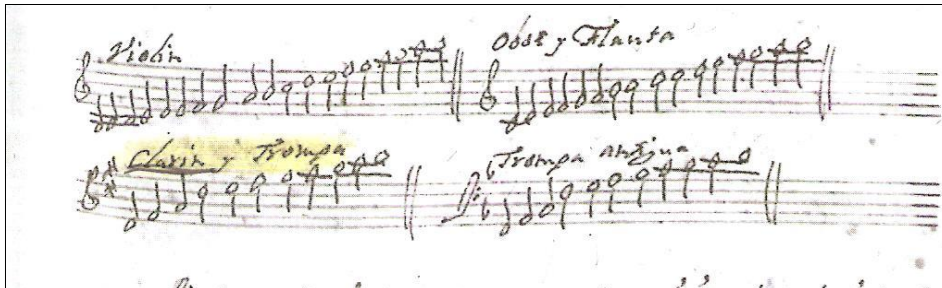 Violin
Oboe y Flauta
Clarin y Trompa
Trompa antigua